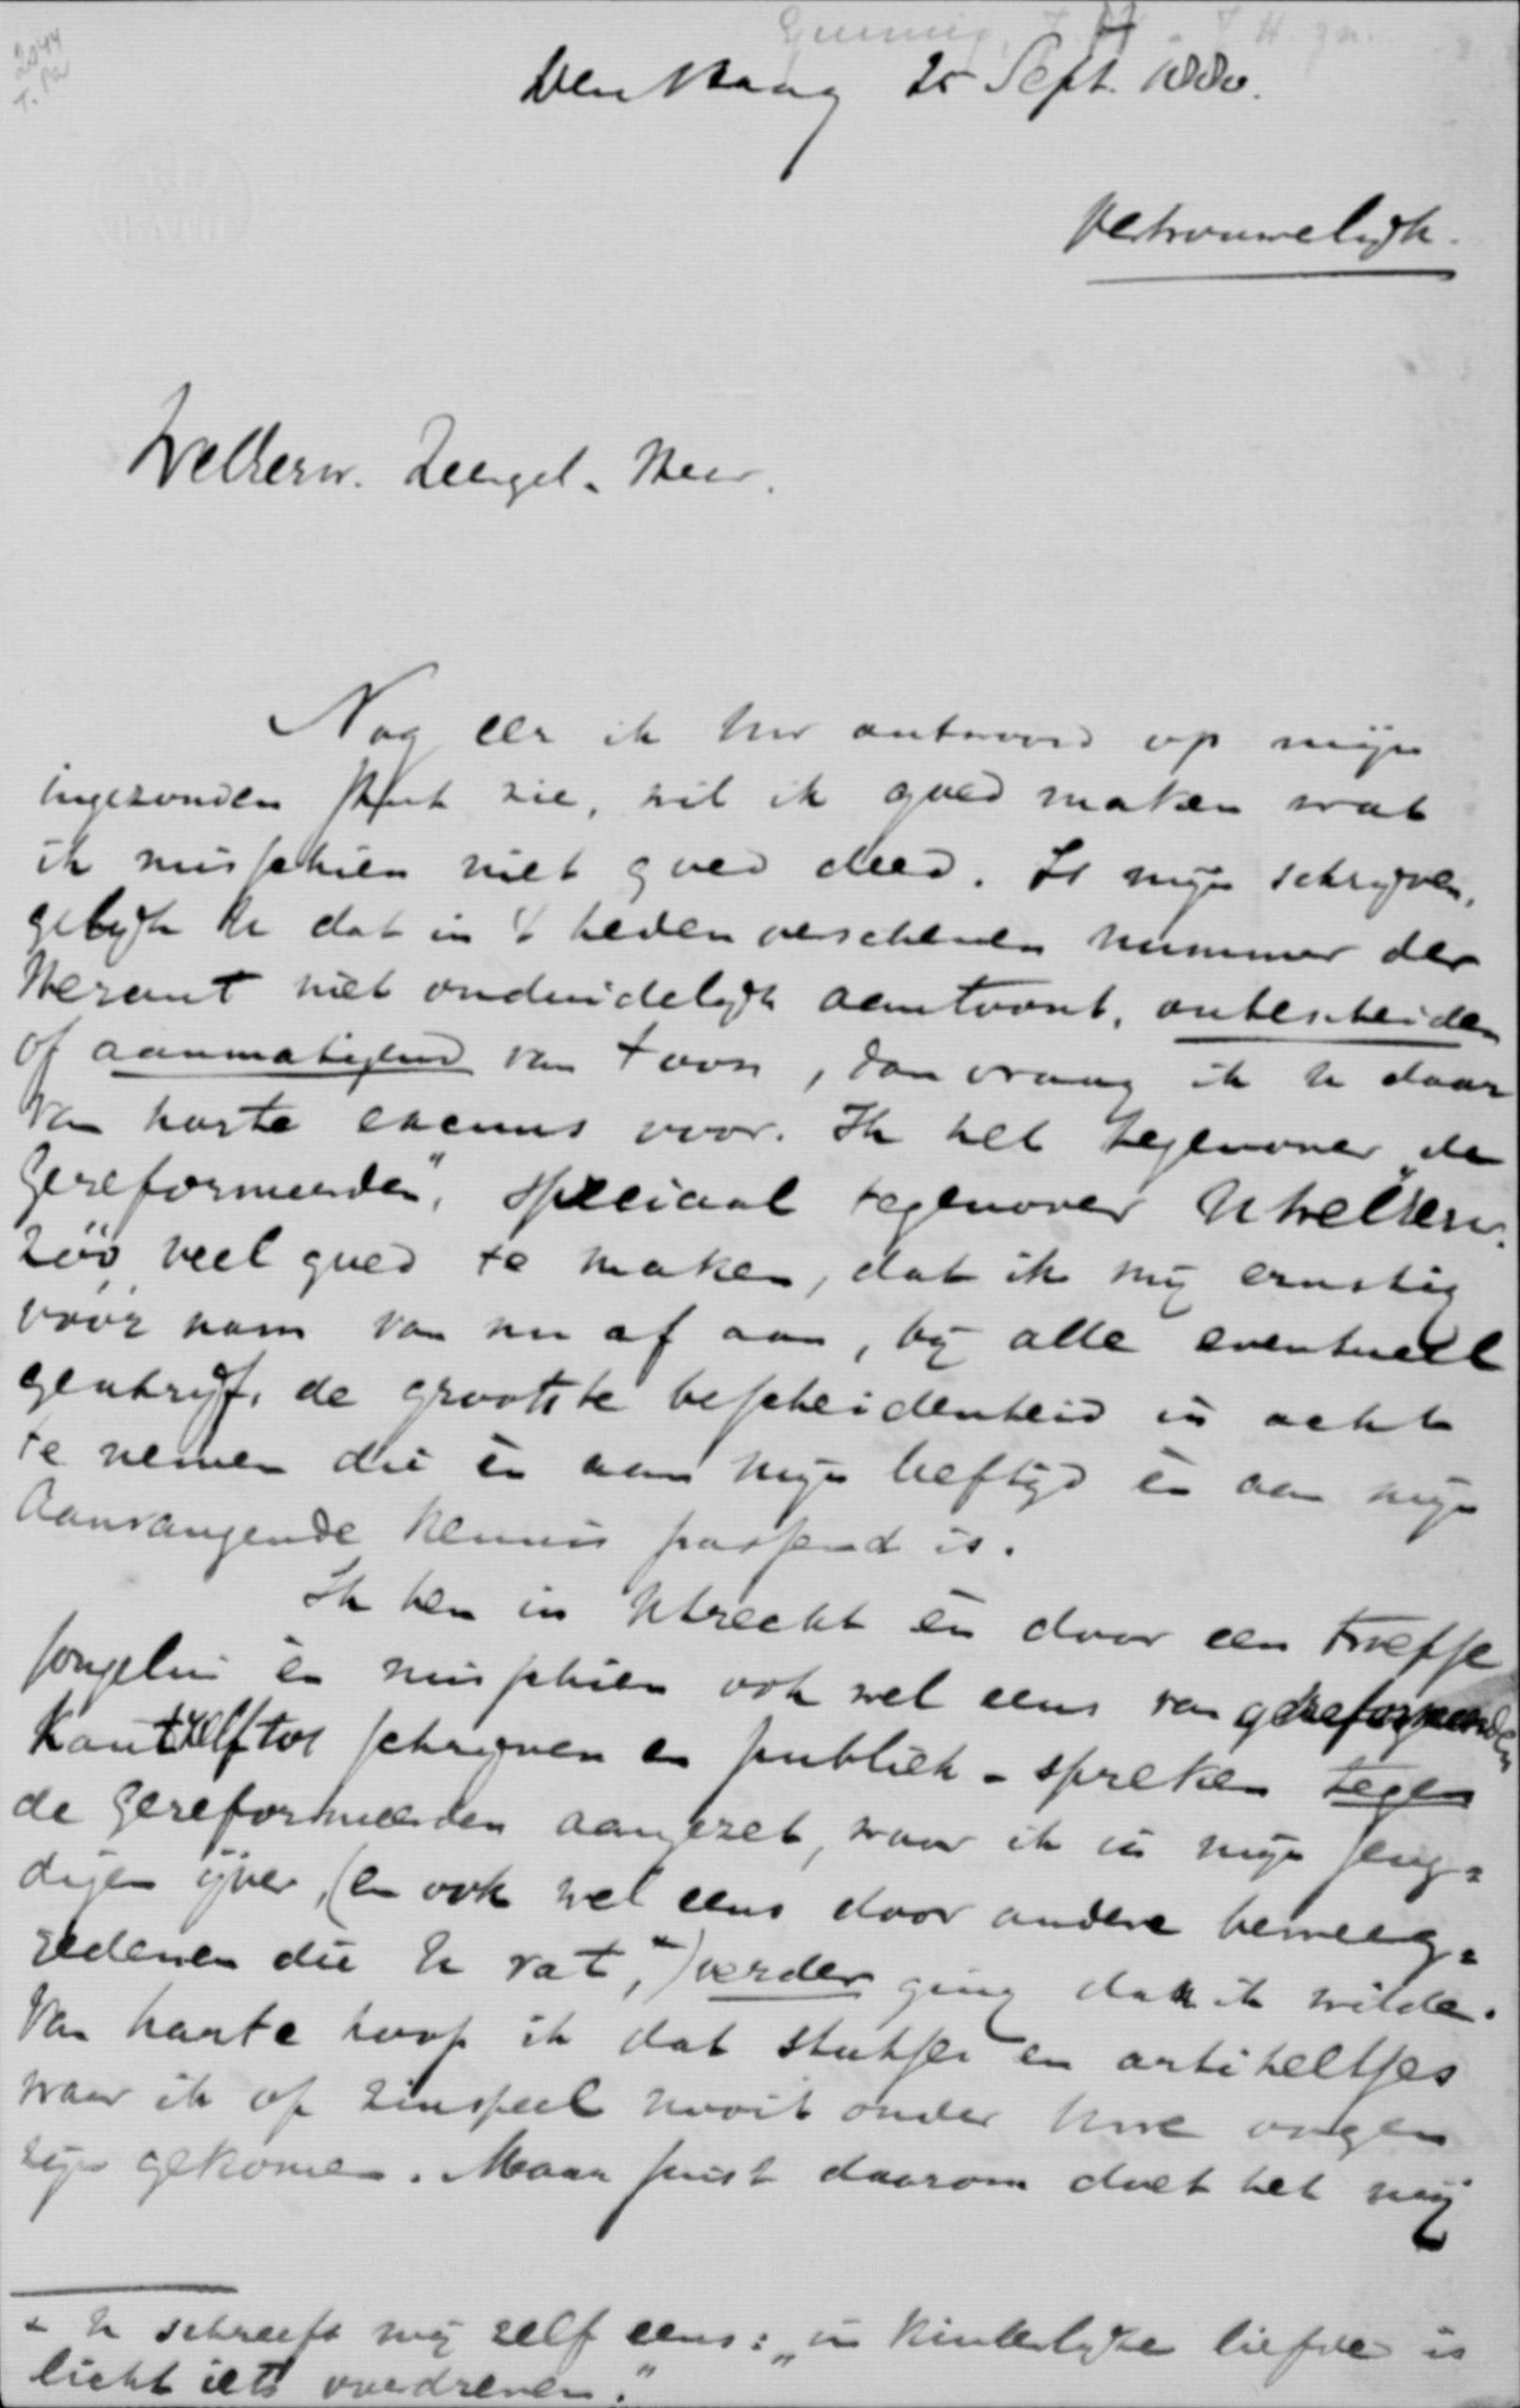 Gunning, J. H. J. H. zn.
2044
Den Haag 25 Sept. 1880.
Vertrouwelijk.
WelEerw. Zeergel. Heer.
Nog eer ik Uw antwoord op mijn
ingezonden stuk zie, wil ik goed maken wat
ik misschien niet goed deed. Is mijn schrijven,
gelijk U dat in 't heden verschenen nummer der
Heraut niet onduidelijk aantoont, onbescheiden
of aanmatigend van toon, dan vraag ik U daar
van harte excuus voor. Ik heb tegenover „de
Gereformeerden", speciaal tegenover UWelEerw.
zóó veel goed te maken, dat ik mij ernstig
voor nam van nu af aan, bij alle eventueel
geschrijf, de grootste bescheidenheid in acht
te nemen die èn aan mijn leeftijd èn aan mijn
aanvangende kennis passend is.
Ik ben in Utrecht èn door een troepje
jongelui èn misschien ook wel eens van gereformeerden
kant zelf tot schrijven en publiek-spreken tegen
de Gereformeerden aangezet, waar ik in mijn jeug-
digen ijver, (en ook wel eens door andere beweeg-
redenen die U vat, *) verder ging dan ik wilde.
Van harte hoop ik dat stukjes en artikeltjes
waar ik op zinspeel nooit onder Uwe oogen
zijn gekomen. Maar juist daarom doet het mij
* U schreeft mij zelf eens: „in kinderlijke liefde is
licht iets overdreven."